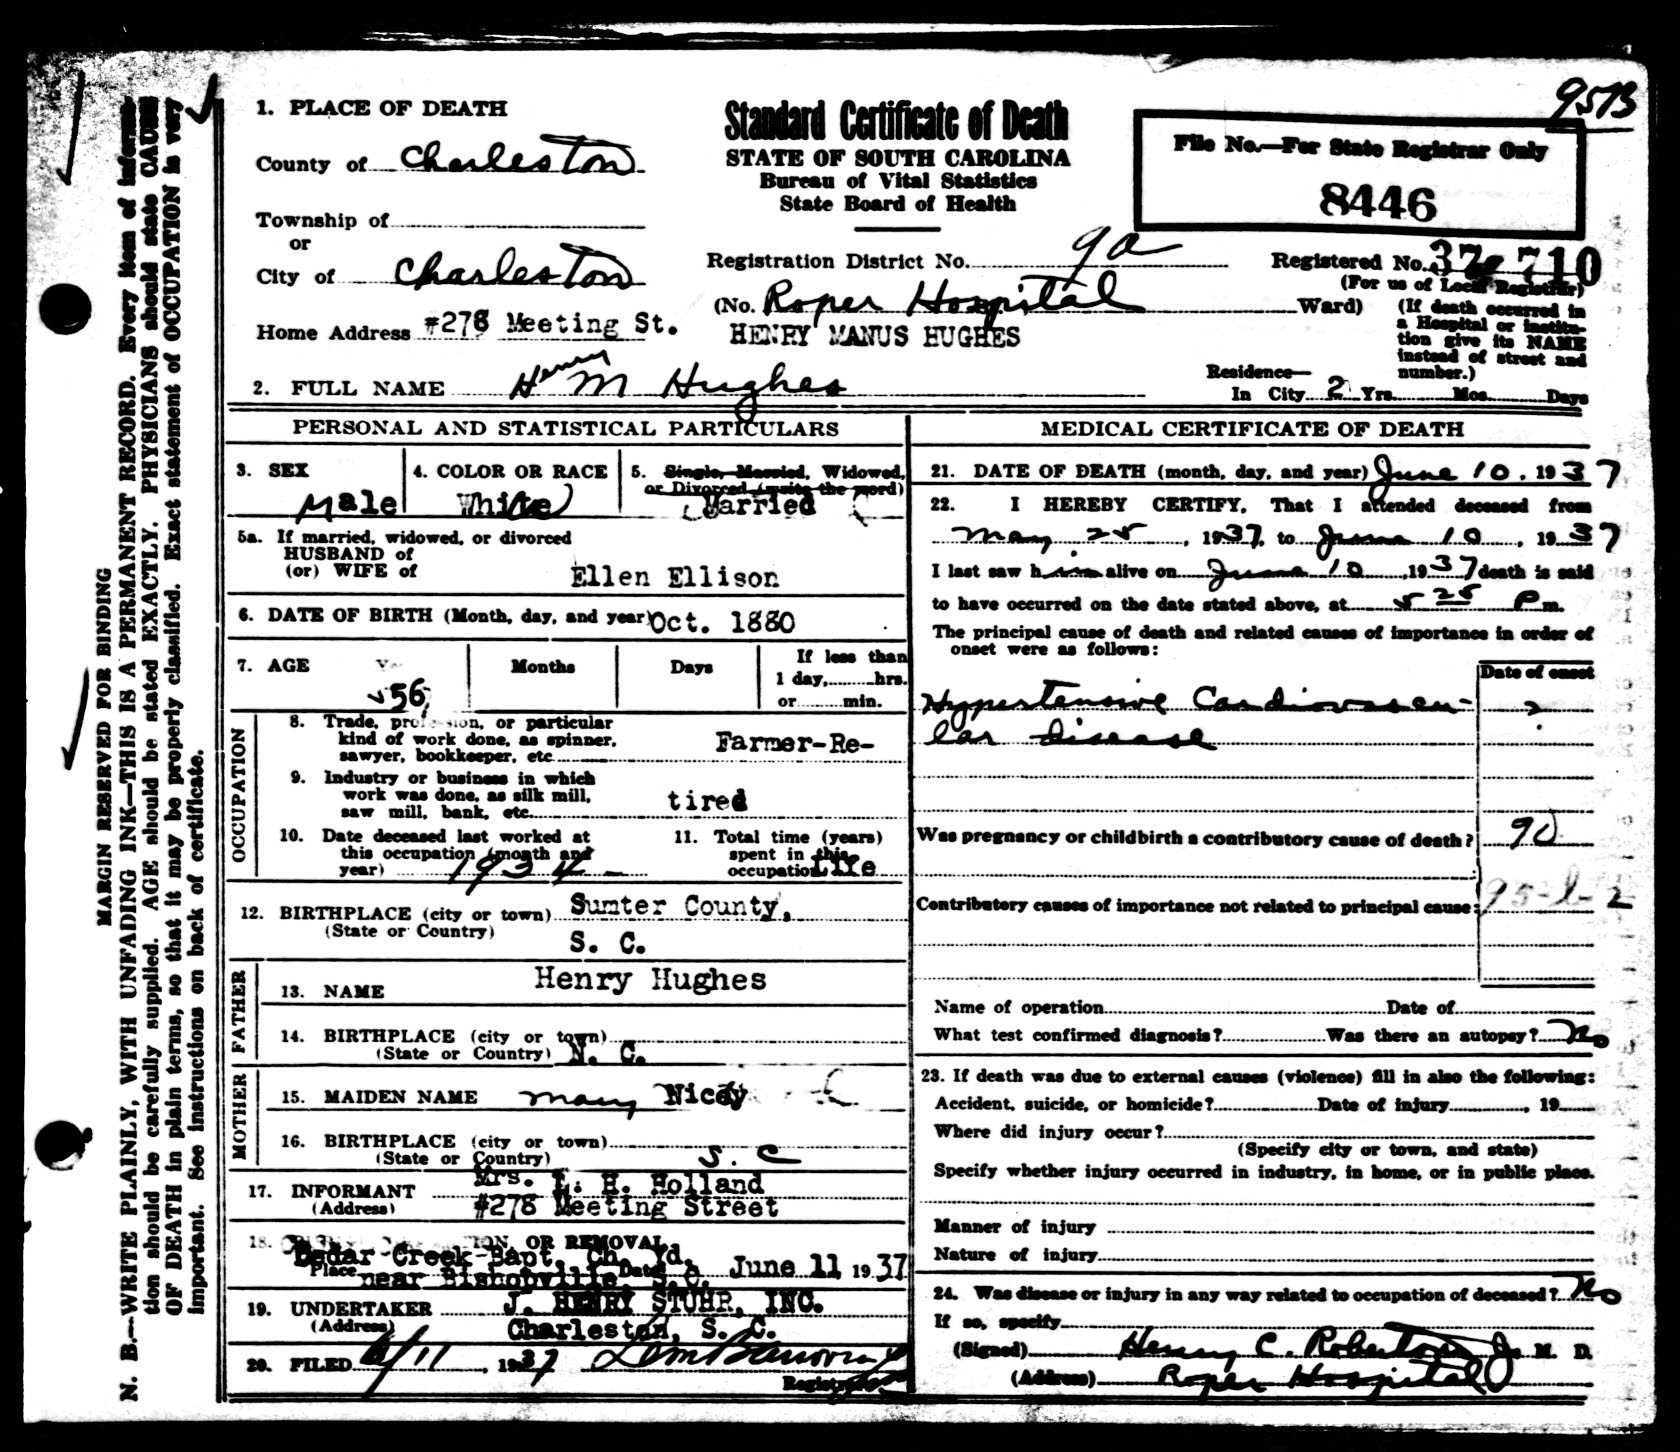 95B
1. PLACE OF DEATH
County of Charleston
Township of
or
City of Charleston
Home Address #278 Meeting St.
Standard Certificate of Death
STATE OF SOUTH CAROLINA
Bureau of Vital Statistics
State Board of Health
File No.—For State Registrar Only
8446
Registration District No. 9a
Registered No. 37- 710
(For us of Local Registrar)
(No. Roper Hospital Ward)
(If death occurred in
a Hospital or institu-
tion give its NAME
instead of street and
number.)
HENRY MANUS HUGHES
2. FULL NAME Henry M Hughes
Residence—
In City 2 Yrs. Mos. Days
PERSONAL AND STATISTICAL PARTICULARS
3. SEX
Male
4. COLOR OR RACE
White
5. Single, Married, Widowed,
or Divorced (write the word)
Married
5a. If married, widowed, or divorced
HUSBAND of
(or) WIFE of
Ellen Ellison
6. DATE OF BIRTH (Month, day, and year) Oct. 1880
7. AGE
56
Months
Days
If less than
1 day, hrs.
or min.
OCCUPATION
8. Trade, profession, or particular
kind of work done, as spinner,
sawyer, bookkeeper, etc.
Farmer-Re-
9. Industry or business in which
work was done, as silk mill,
saw mill, bank, etc.
tired
10. Date deceased last worked at
this occupation (month and
year) 1934
11. Total time (years)
spent in this
occupation Life
12. BIRTHPLACE (city or town) Sumter County,
(State or Country) S. C.
FATHER
13. NAME Henry Hughes
14. BIRTHPLACE (city or town)
(State or Country) N. C.
MOTHER
15. MAIDEN NAME Mary Nicey
16. BIRTHPLACE (city or town)
(State or Country) S. C
17. INFORMANT Mrs. L. H. Holland
(Address) #278 Meeting Street
18. OR REMOVAL
Cedar Creek Bapt. Ch. Yd.
Place near Bishopville, S.C. Date June 11 1937
19. UNDERTAKER J. HENRY STUHR, INC.
(Address) Charleston, S. C.
20. FILED 6/11, 1937
Registrar
MEDICAL CERTIFICATE OF DEATH
21. DATE OF DEATH (month, day, and year) June 10, 1937
22. I HEREBY CERTIFY, That I attended deceased from
May 25, 1937, to June 10, 1937
I last saw him alive on June 10, 1937 death is said
to have occurred on the date stated above, at 5 25 P m.
The principal cause of death and related causes of importance in order of
onset were as follows:
Date of onset
Hypertensive Cardiovascu-
lar disease
?
Was pregnancy or childbirth a contributory cause of death?
90
Contributory causes of importance not related to principal cause:
95-b-2
Name of operation Date of
What test confirmed diagnosis? Was there an autopsy? No
23. If death was due to external causes (violence) fill in also the following:
Accident, suicide, or homicide? Date of injury , 19
Where did injury occur?
(Specify city or town, and state)
Specify whether injury occurred in industry, in home, or in public place.
Manner of injury
Nature of injury
24. Was disease or injury in any way related to occupation of deceased? No
If so, specify
(Signed) Henry C. Robertson Jr M. D.
(Address) Roper Hospital
MARGIN RESERVED FOR BINDING
N. B.—WRITE PLAINLY, WITH UNFADING INK—THIS IS A PERMANENT RECORD. Every item of informa-
tion should be carefully supplied. AGE should be stated EXACTLY. PHYSICIANS should state CAUSE
OF DEATH in plain terms, so that it may be properly classified. Exact statement of OCCUPATION is very
important. See instructions on back of certificate.